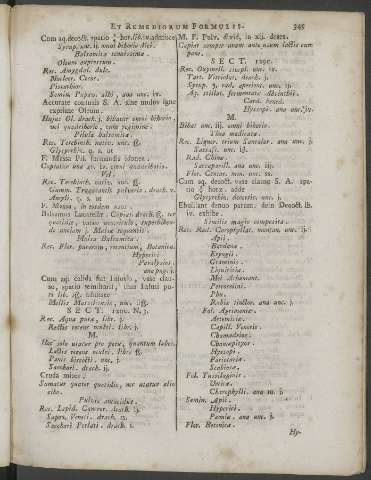 ET REMEDIORUM FORMULIS. 345
Cum aq. decoct. spatio ½ hor. lib. iv. admisce
Syrup. unc. ij. omni bihorio dici.
Balsamita tenuissima.
Oleum expressum.
Rec. Amygdal. dulc.
Nucleor. Cicer.
Pistaciar.
Semin. Papav. albi, ana unc. iv.
Accurate contusis S. A. sine multo igne
exprime Oleum.
Hujus Ol. drach. j. bibatur omni bihorio,
vel quadrihorio, cum regimine
Pilula balsamita.
Rec. Terebinth. nativ. unc. ss.
Glycyrrhiz. q. s. ut
F. Massa Pil. formandis idonea.
Capiatur una gr. iv. omni quadrihorio.
Vel
Rec. Terebinth. nativ. unc. ss.
Gummi Tragacanth. pulveris. drach. v.
Amyli. q. s. ut
F. Massa, in eosdem usus
Balsamus Lucatelli. Capiat drach. ss. ter
quotidie, vacuo ventriculo, superbibendo
anclam j. Mulsæ sequentis.
Mulsa Balsamita.
Rec. Flor. purorum, recentium, Botonica.
Hyperici
Paralyseos.
ana pug. j.
Cum aq. calida fiat Infusio, vase clauso,
spatio semihoræ, tunc Infusi puri
lib. iss. subigatur
Mellis Massiliensis, unc. iss.
SECT. 1290. N.3.
Rec. Aquæ puræ, libr. j.
Lactis recens mulcti. libr. j.
M.
Hoc solo utatur pro potu, quantum lubet.
Lactis recens mulcti, libr. ss.
Panis biscocti, unc. j.
Sacchari. drach. ij.
Cruda misce
Sumatur quater quotidie, nec utatur alio
cibo.
Pulvis antacidus.
Rec. Lapid. Cancror. drach. ij.
Sapon. Veneti. drach. ss.
Sacchari Perlati. drach. i.
M. F. Pulv. divid. in xij. doses.
Capiat semper unam ante panem lactis cum
pane.
SECT. 1291.
Rec. Oxymell. simpl. unc. iv.
Tart. Vitriolat. drach. j.
Syrup. 5. rad. aperient. unc. ij
Aq. stillat. fermentatæ Absinthii.
Card. bened.
Hyssopi. ana unc. iv.
M.
Bibat unc. iij. omni bihorio.
Thea medicata.
Rec. Lignor. trium Santalor. ana unc. j.
Sassafr. unc. ij.
Rad. Chinæ.
Sarsaparill. ana unc. iij.
Flor. Centaur. min. unc. ss.
Cum aq. decoct. vase clauso S. A. spatio
½ horæ adde
Glycyrrhiz. decortic. unc. j.
Ebulliant denuo parum: dein Decocti lib.
iv. exhibe.
Similis magis composita.
Rec. Rad. Caryophyllat. montan. unc. ij.
Apii.
Bardanæ.
Eryngii.
Graminis.
Liquiritiæ.
Mei Athamant.
Petroselini.
Phu.
Rubiæ tinctor. ana unc. j.
Fol. Agrimoniæ.
Artemisiæ.
Capill. Veneris.
Chamædrios.
Chamæpityos.
Hyssopi.
Parietariæ.
Scabiosæ.
Fol. Tussilaginis.
Urticæ.
Chærophylli. ana m. j.
Semin. Apii.
Hyperici.
Flor. Betonicæ.
Hy-